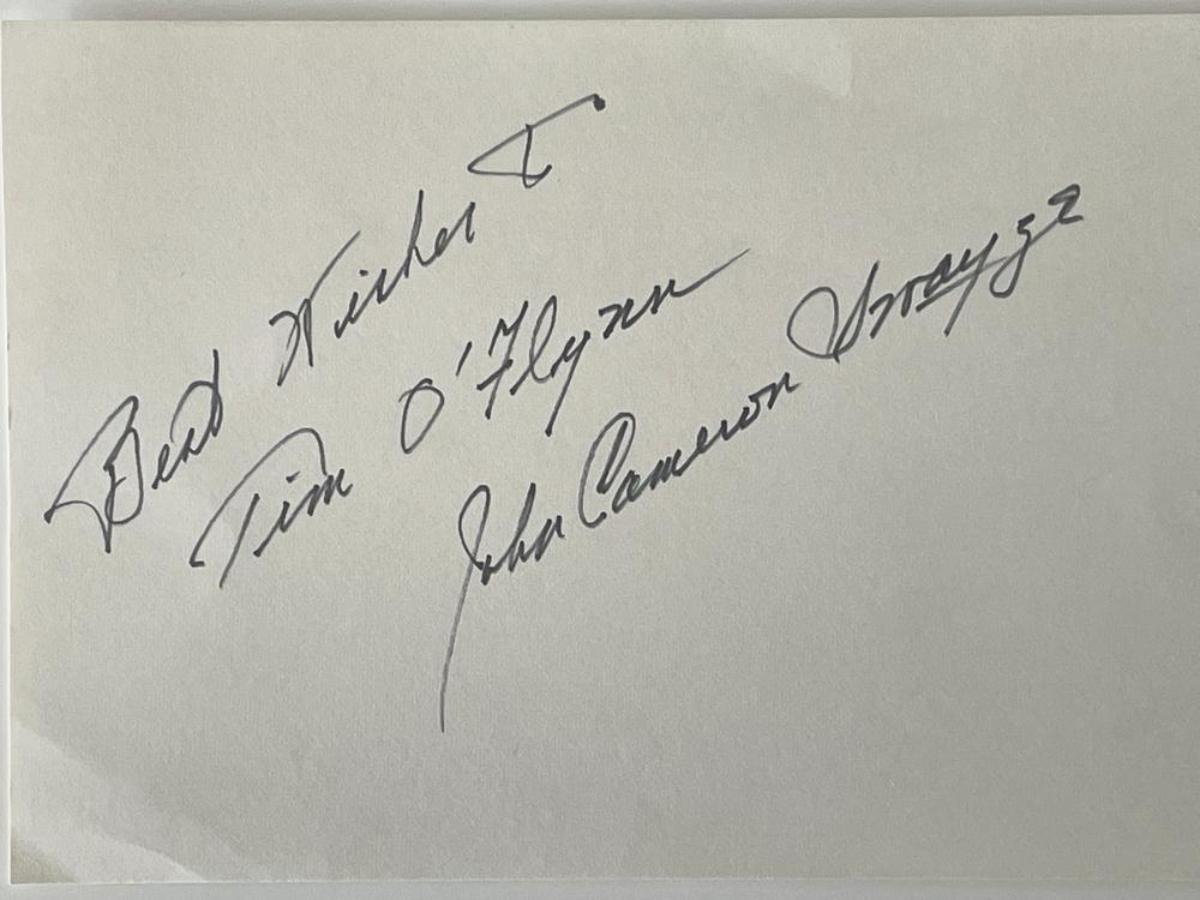 Best Wishes to
Tim O'Flynn
John Cameron Swayze